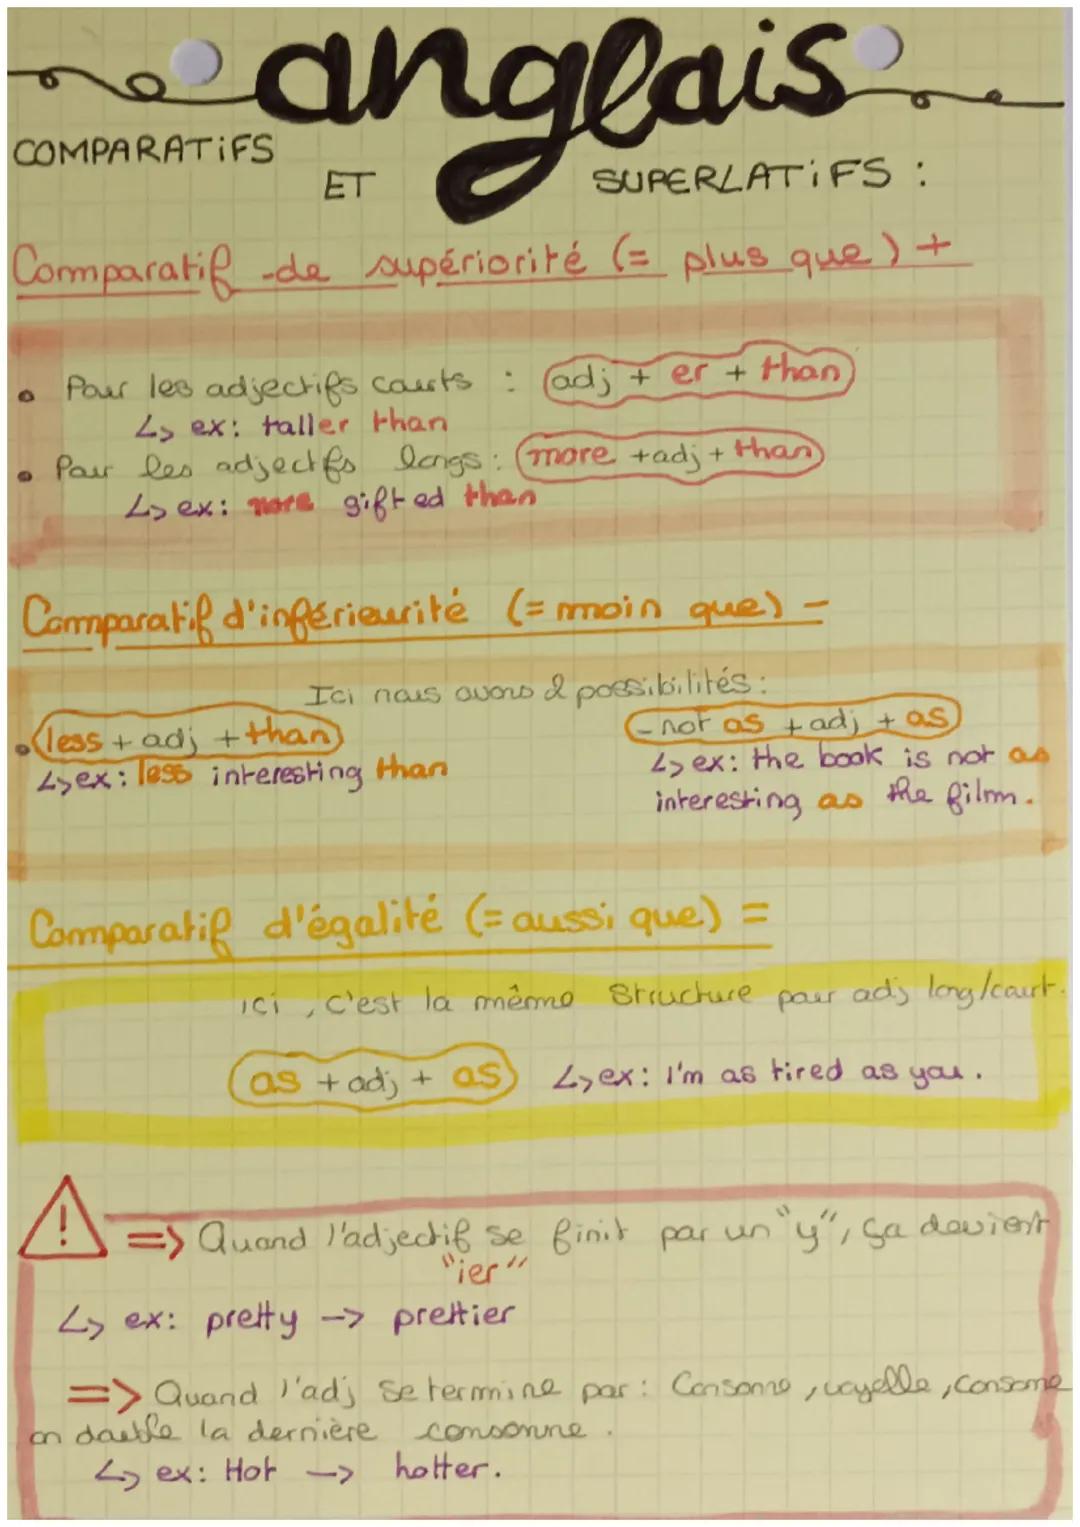 anglais
COMPARATIFS
ET
SUPERLATIFS :
Commparatif de supériorité (= plus que) +
• Pour les adjectifs courts : adj + er + than
↳ ex: taller than
• Pour les adjectfs longs : more + adj + than
↳ ex: more gifted than
Commparatif d'inférieurité (= moin que) -
Ici nous avons 2 possibilités :
• less + adj + than
↳ ex: less interesting than
- not as + adj + as
↳ ex: the book is not as
interesting as the film.
Commparatif d'égalité (= aussi que) =
ici, c'est la même structure pour adj long/court.
as + adj + as ↳ ex: I'm as tired as you.
! => Quand l'adjectif se finit par un "y", ça devient
"ier"
↳ ex: pretty -> prettier
=> Quand l'adj se termine par : Consonne, voyelle, consonne
on double la dernière consonne.
↳ ex: Hot -> hotter.